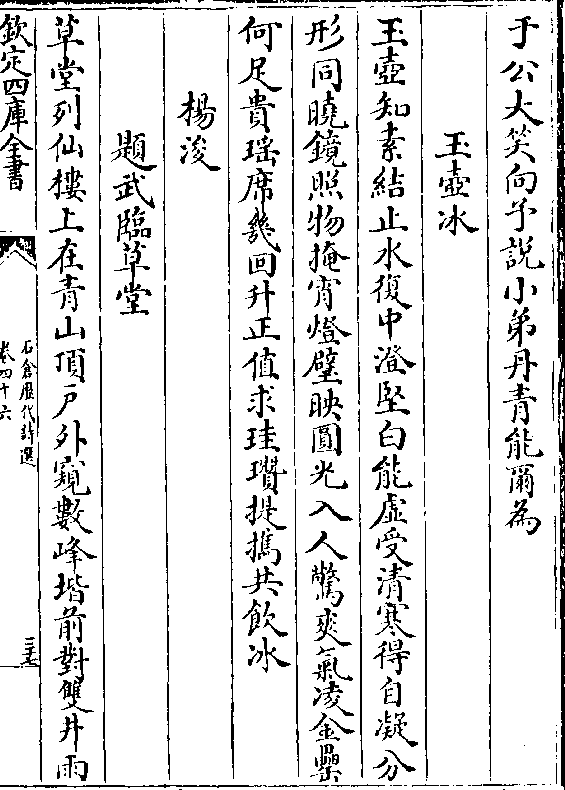 于公大笑向予說小弟丹青能爾為
玉壺冰
玉壺知素結止水復中澄堅白能虛受清寒得自凝分
形同曉鏡照物掩宵燈壁映圓光入人驚爽氣凌金罍
何足貴瑤席幾回升正值求珪瓚提攜共飲冰
楊浚
題武臨草堂
草堂列仙樓上在青山頂戶外窺數峰堦前對雙井雨
欽定四庫全書
石倉歷代詩選
卷四十六
三十七